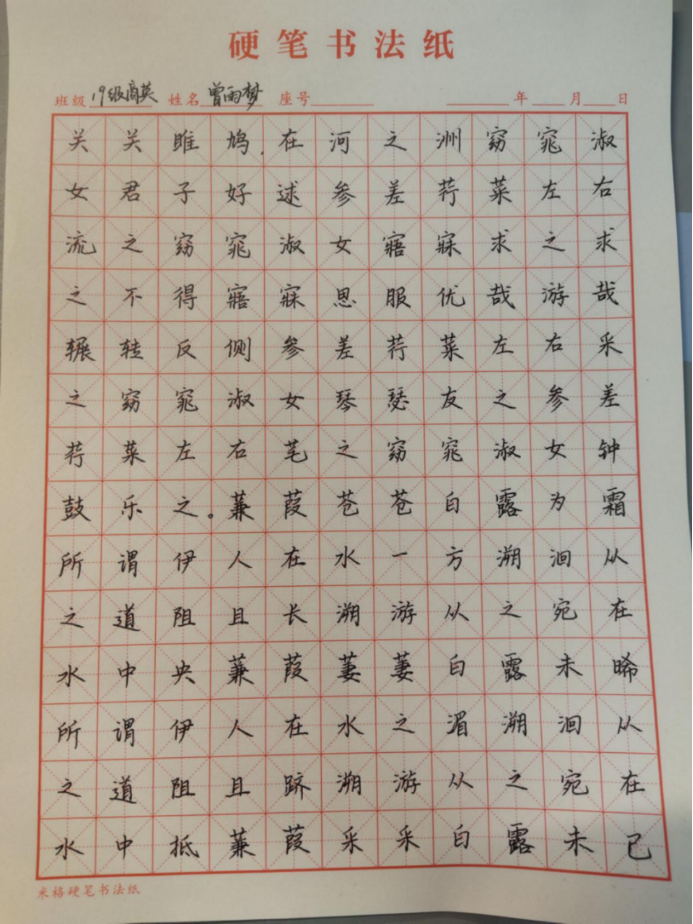 硬笔书法纸
班级 19级商英 姓名 曾雨梦 座号 年 月 日
关关雎鸠在河之洲窈窕淑
女君子好逑参差荇菜左右
流之窈窕淑女寤寐求之求
之不得寤寐思服优哉游哉
辗转反侧参差荇菜左右采
之窈窕淑女琴瑟友之参差
荇菜左右芼之窈窕淑女钟
鼓乐之。蒹葭苍苍白露为霜
所谓伊人在水一方溯洄从
之道阻且长溯游从之宛在
水中央蒹葭萋萋白露未晞
所谓伊人在水之湄溯洄从
之道阻且跻溯游从之宛在
水中坻蒹葭采采白露未已
米格硬笔书法纸